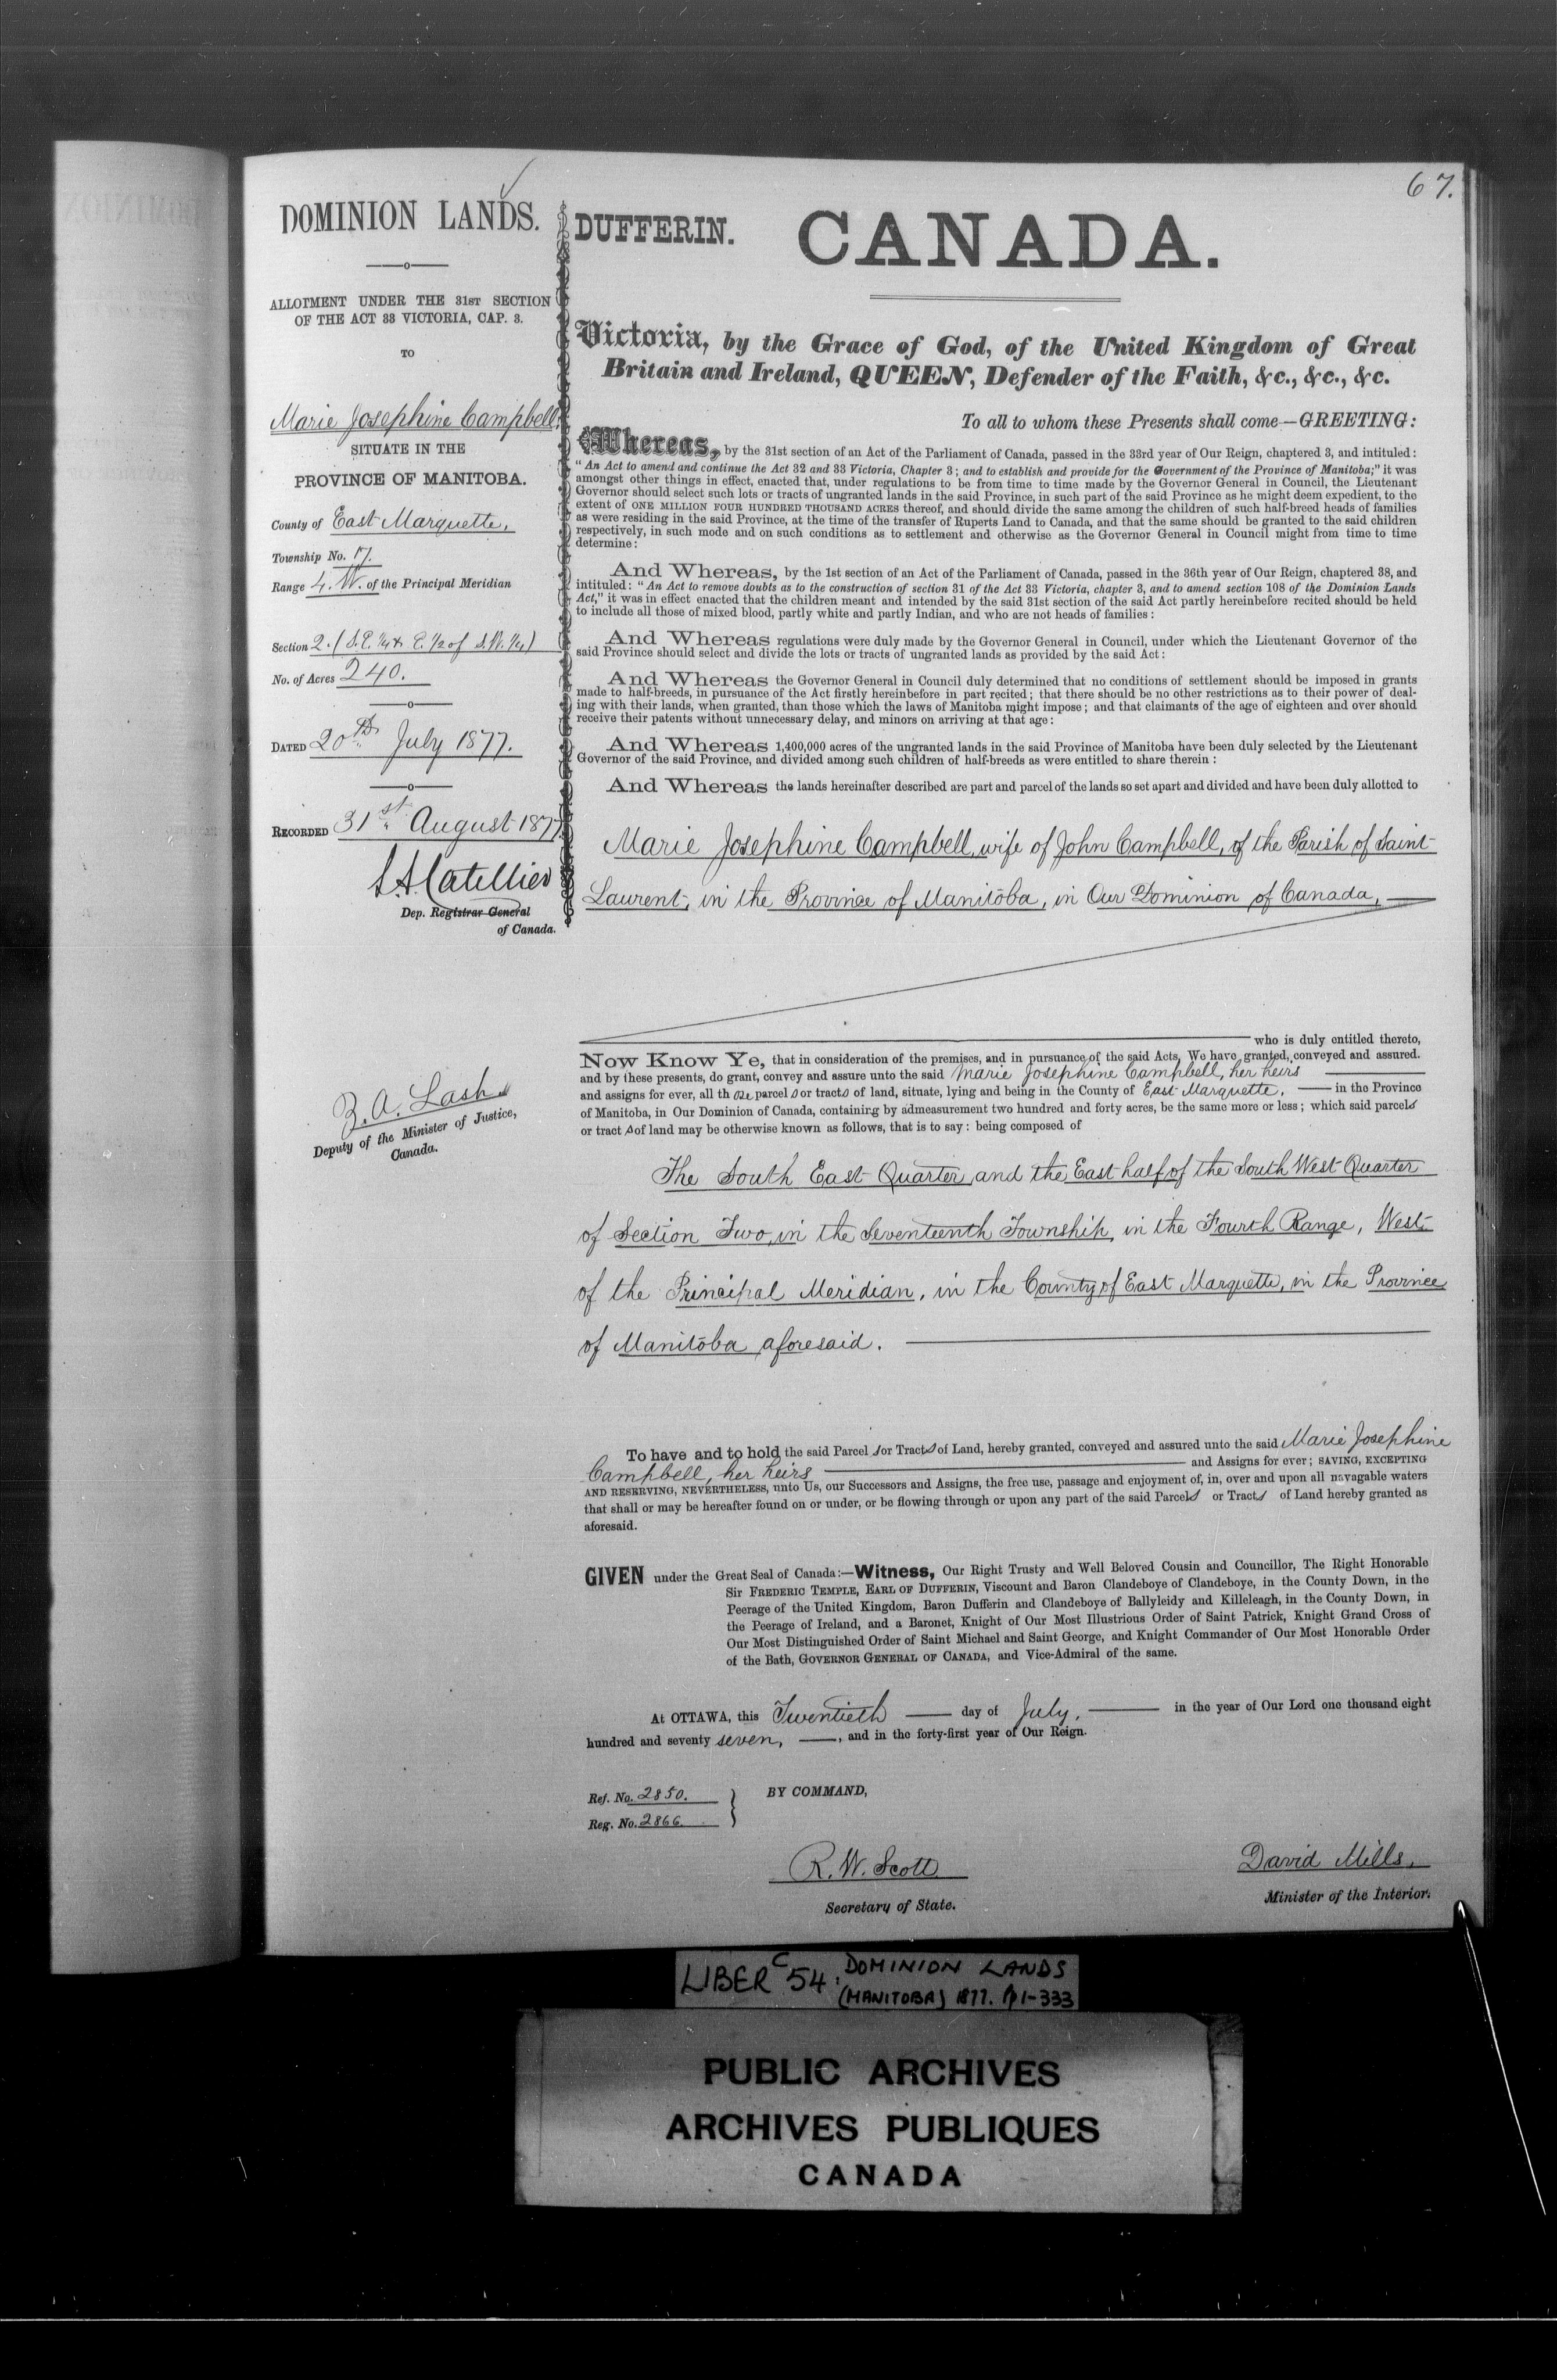 67.
DOMINION LANDS.
ALLOTMENT UNDER THE 31ST SECTION
OF THE ACT 33 VICTORIA, CAP. 3.
TO
Marie Josephine Campbell,
SITUATE IN THE
PROVINCE OF MANITOBA.
County of East Marquette,
Township No. 17.
Range 4. W. of the Principal Meridian
Section 2. (S.E. 1/4 & E. 1/2 of S.W. 1/4)
No. of Acres 240.
DATED 20th July 1877.
RECORDED 31st August 1877
Dep. Registrar General
of Canada.
Z. A. Lash
Deputy of the Minister of Justice,
Canada.
DUFFERIN. CANADA.
Victoria, by the Grace of God, of the United Kingdom of Great
Britain and Ireland, QUEEN, Defender of the Faith, &c., &c., &c.
To all to whom these Presents shall come—GREETING:
Whereas, by the 31st section of an Act of the Parliament of Canada, passed in the 33rd year of Our Reign, chaptered 3, and intituled:
"An Act to amend and continue the Act 32 and 33 Victoria, Chapter 3; and to establish and provide for the Government of the Province of Manitoba;" it was
amongst other things in effect, enacted that, under regulations to be from time to time made by the Governor General in Council, the Lieutenant
Governor should select such lots or tracts of ungranted lands in the said Province, in such part of the said Province as he might deem expedient, to the
extent of ONE MILLION FOUR HUNDRED THOUSAND ACRES thereof, and should divide the same among the children of such half-breed heads of families
as were residing in the said Province, at the time of the transfer of Ruperts Land to Canada, and that the same should be granted to the said children
respectively, in such mode and on such conditions as to settlement and otherwise as the Governor General in Council might from time to time
determine:
And Whereas, by the 1st section of an Act of the Parliament of Canada, passed in the 36th year of Our Reign, chaptered 38, and
intituled: "An Act to remove doubts as to the construction of section 31 of the Act 33 Victoria, chapter 3, and to amend section 108 of the Dominion Lands
Act," it was in effect enacted that the children meant and intended by the said 31st section of the said Act partly hereinbefore recited should be held
to include all those of mixed blood, partly white and partly Indian, and who are not heads of families:
And Whereas regulations were duly made by the Governor General in Council, under which the Lieutenant Governor of the
said Province should select and divide the lots or tracts of ungranted lands as provided by the said Act:
And Whereas the Governor General in Council duly determined that no conditions of settlement should be imposed in grants
made to half-breeds, in pursuance of the Act firstly hereinbefore in part recited; that there should be no other restrictions as to their power of deal-
ing with their lands, when granted, than those which the laws of Manitoba might impose; and that claimants of the age of eighteen and over should
receive their patents without unnecessary delay, and minors on arriving at that age:
And Whereas 1,400,000 acres of the ungranted lands in the said Province of Manitoba have been duly selected by the Lieutenant
Governor of the said Province, and divided among such children of half-breeds as were entitled to share therein:
And Whereas the lands hereinafter described are part and parcel of the lands so set apart and divided and have been duly allotted to
Marie Josephine Campbell, wife of John Campbell, of the Parish of Saint
Laurent, in the Province of Manitoba, in Our Dominion of Canada,
who is duly entitled thereto,
Now Know Ye, that in consideration of the premises, and in pursuance of the said Acts, We have granted, conveyed and assured.
and by these presents, do grant, convey and assure unto the said Marie Josephine Campbell, her heirs
and assigns for ever, all those parcels or tracts of land, situate, lying and being in the County of East Marquette, in the Province
of Manitoba, in Our Dominion of Canada, containing by admeasurement two hundred and forty acres, be the same more or less; which said parcels
or tracts of land may be otherwise known as follows, that is to say: being composed of
The South East Quarter and the East half of the South West Quarter
of Section Two, in the Seventeenth Township, in the Fourth Range, West
of the Principal Meridian, in the County of East Marquette, in the Province
of Manitoba aforesaid.
To have and to hold the said Parcels or Tracts of Land, hereby granted, conveyed and assured unto the said Marie Josephine
Campbell, her heirs and Assigns for ever; SAVING, EXCEPTING
AND RESERVING, NEVERTHELESS, unto Us, our Successors and Assigns, the free use, passage and enjoyment of, in, over and upon all navagable waters
that shall or may be hereafter found on or under, or be flowing through or upon any part of the said Parcels or Tracts of Land hereby granted as
aforesaid.
GIVEN under the Great Seal of Canada:—Witness, Our Right Trusty and Well Beloved Cousin and Councillor, The Right Honorable
Sir FREDERIC TEMPLE, EARL OF DUFFERIN, Viscount and Baron Clandeboye of Clandeboye, in the County Down, in the
Peerage of the United Kingdom, Baron Dufferin and Clandeboye of Ballyleidy and Killeleagh, in the County Down, in
the Peerage of Ireland, and a Baronet, Knight of Our Most Illustrious Order of Saint Patrick, Knight Grand Cross of
Our Most Distinguished Order of Saint Michael and Saint George, and Knight Commander of Our Most Honorable Order
of the Bath, GOVERNOR GENERAL OF CANADA, and Vice-Admiral of the same.
At OTTAWA, this Twentieth day of July, in the year of Our Lord one thousand eight
hundred and seventy seven, and in the forty-first year of Our Reign.
Ref. No. 2850.
Reg. No. 2866.
BY COMMAND,
R. W. Scott
Secretary of State.
David Mills,
Minister of the Interior.
LIBER C 54: DOMINION LANDS
(MANITOBA) 1877. pp 1-333
PUBLIC ARCHIVES
ARCHIVES PUBLIQUES
CANADA